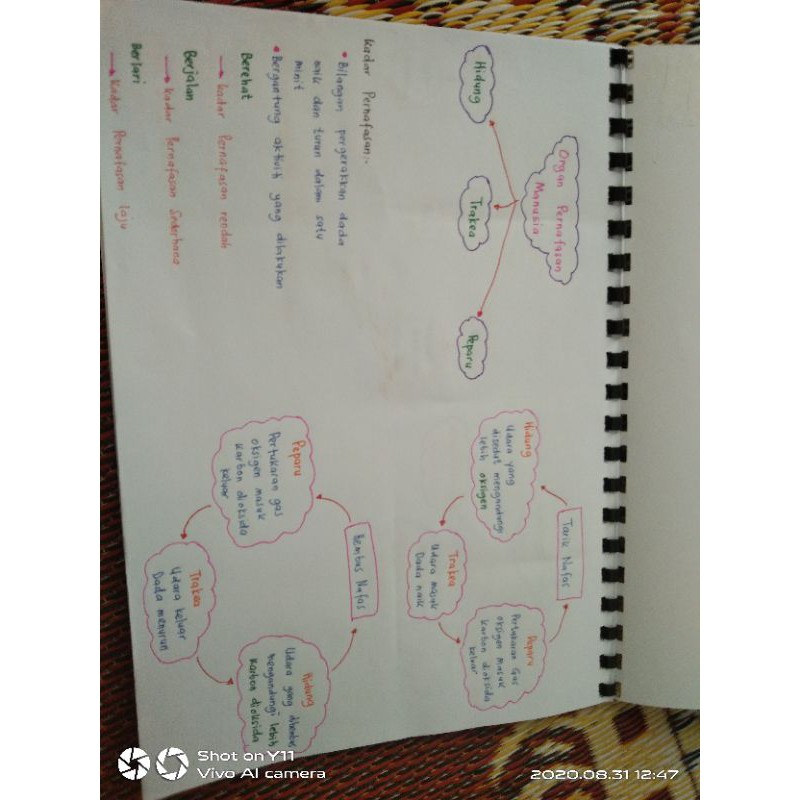 Organ Pernafasan
Manusia
Hidung
Trakea
Peparu
Kadar Pernafasan:-
• Bilangan pergerakkan dada
naik dan turun dalam satu
minit
• Bergantung aktiviti yang dilakukan
Berehat
→ kadar Pernafasan rendah
Berjalan
→ kadar Pernafasan Sederhana
Berlari
→ kadar Pernafasan laju
Tarik Nafas
Hidung
Udara yang
disedut mengandungi
lebih oksigen
Trakea
Udara masuk
Dada naik
Peparu
Pertukaran Gas
oksigen masuk
karbon dioksida
keluar
Hembus Nafas
Peparu
Pertukaran gas
oksigen masuk
karbon dioksida
keluar
Trakea
Udara keluar
Dada menurun
Hidung
Udara yang dihembus
mengandungi lebih
karbon dioksida
Shot on Y11
Vivo AI camera
2020.08.31 12:47